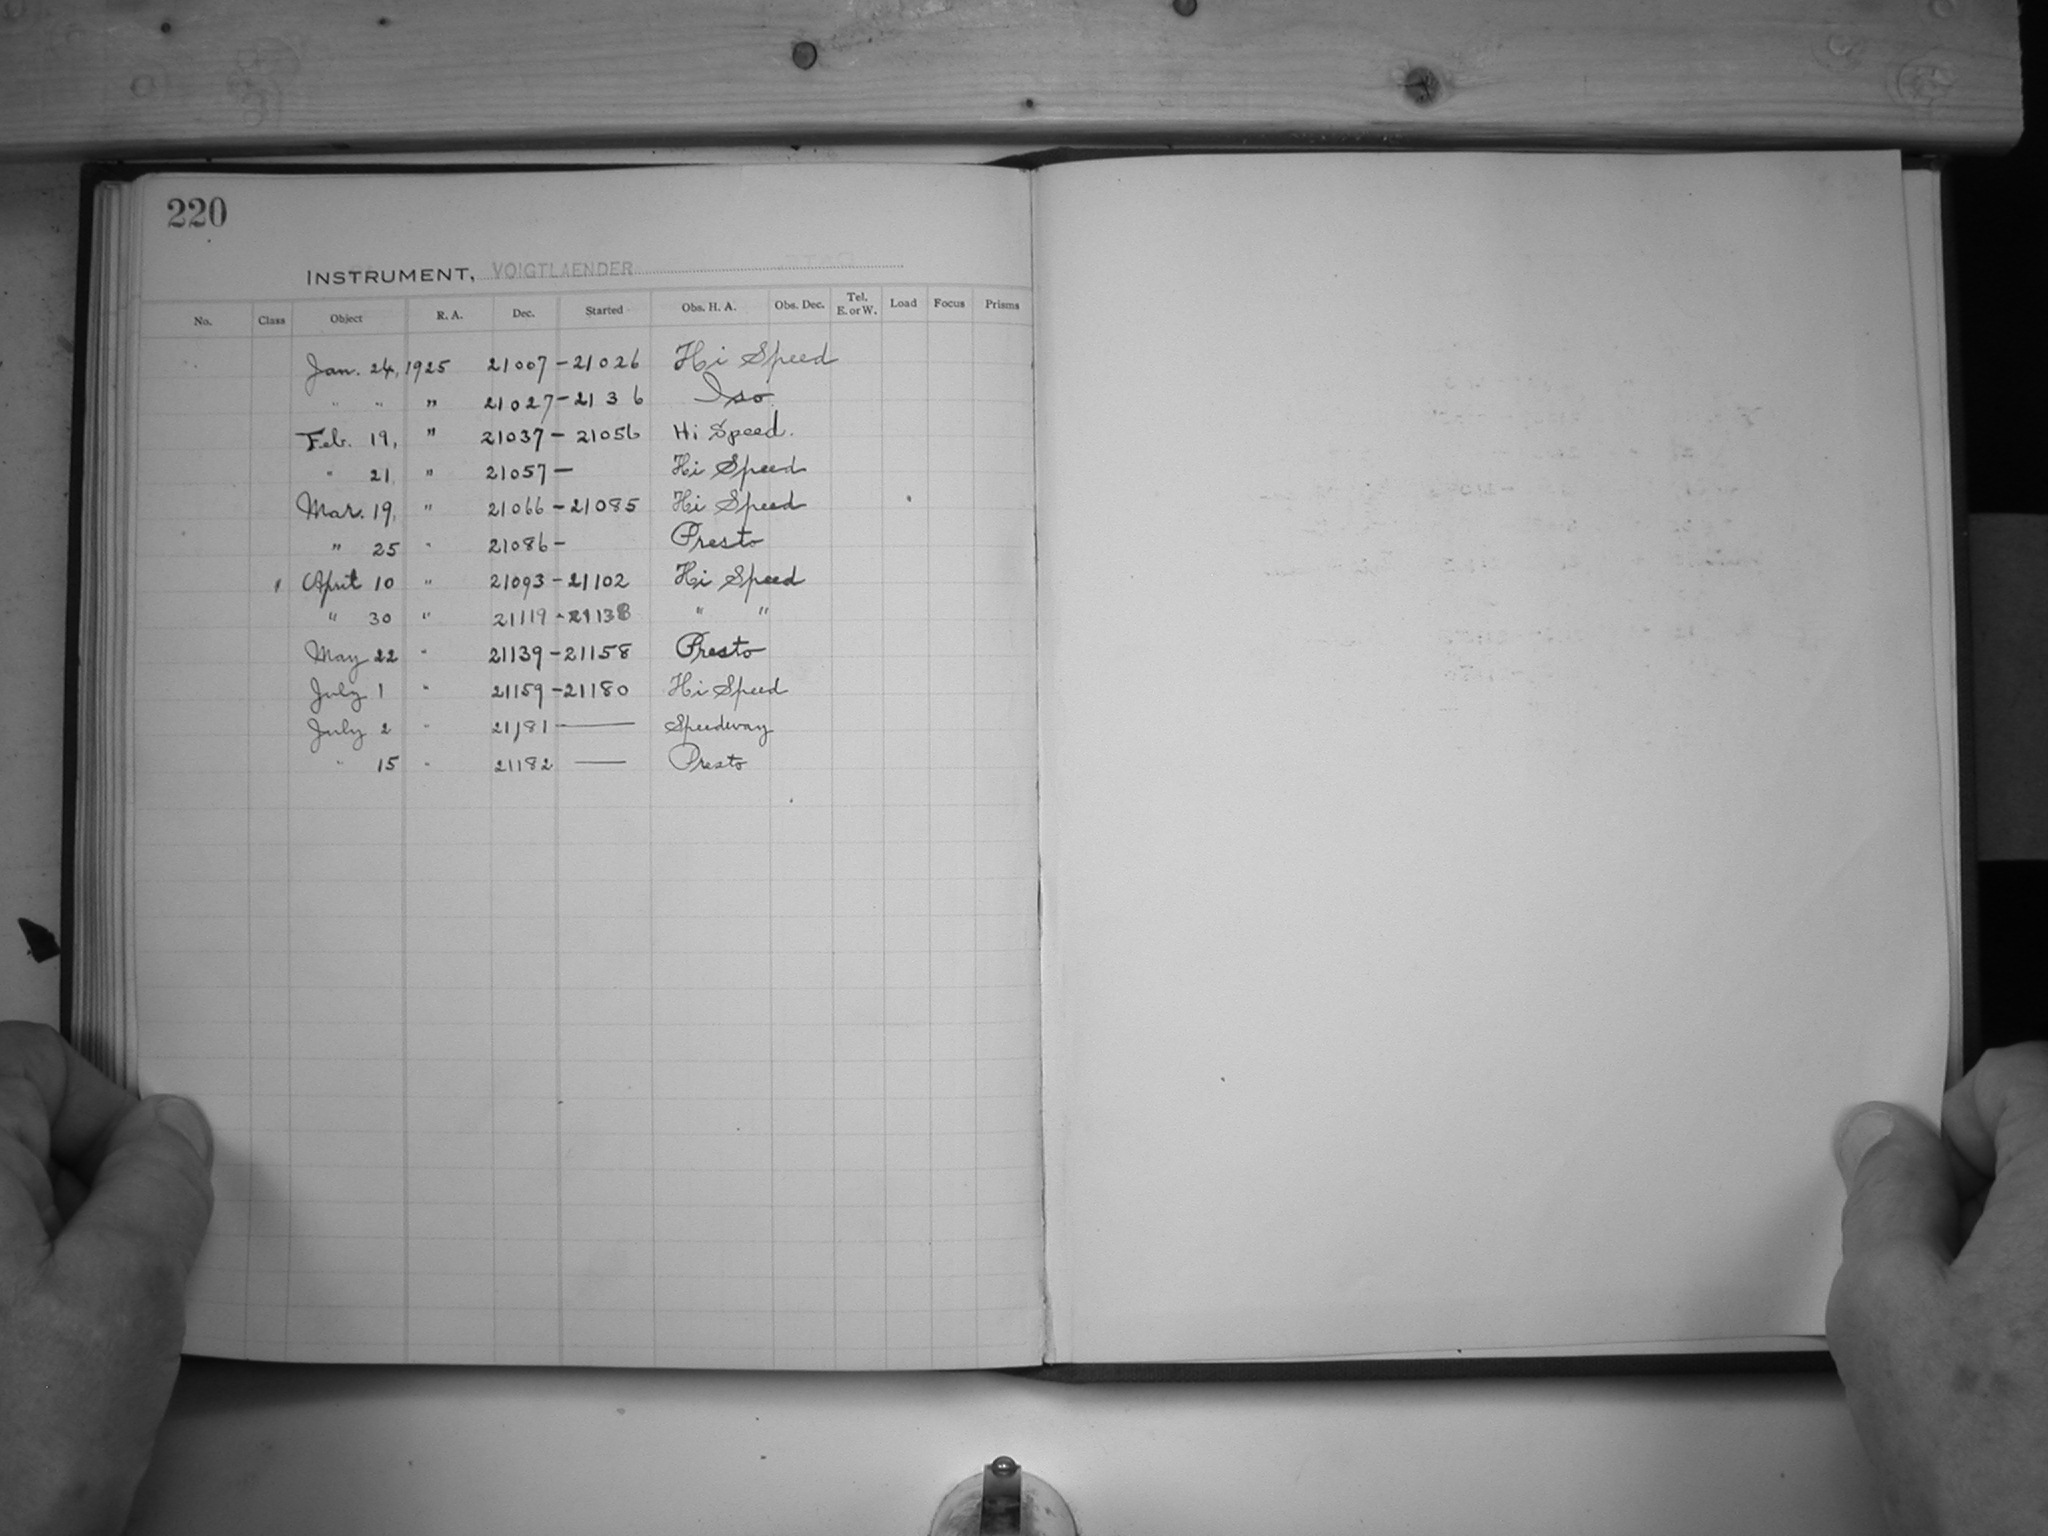 220
INSTRUMENT, VOIGTLAENDER
No. Class Object R. A. Dec. Started Obs. H. A. Obs. Dec. Tel. E. or W. Load Focus Prisms
Jan. 24, 1925 21007 - 21026 Hi Speed
" " " 21027 - 21 3 6 Iso.
Feb. 19, " 21037 - 21056 Hi Speed.
" 21, " 21057 - Hi Speed
Mar. 19, " 21066 - 21085 Hi Speed
" 25 " 21086 - Presto
April 10 " 21093 - 21102 Hi Speed
" 30 " 21119 - 21138 " "
May 22 " 21139 - 21158 Presto
July 1 " 21159 - 21180 Hi Speed
July 2 " 21181 — Speedway
" 15 " 21182 — Presto